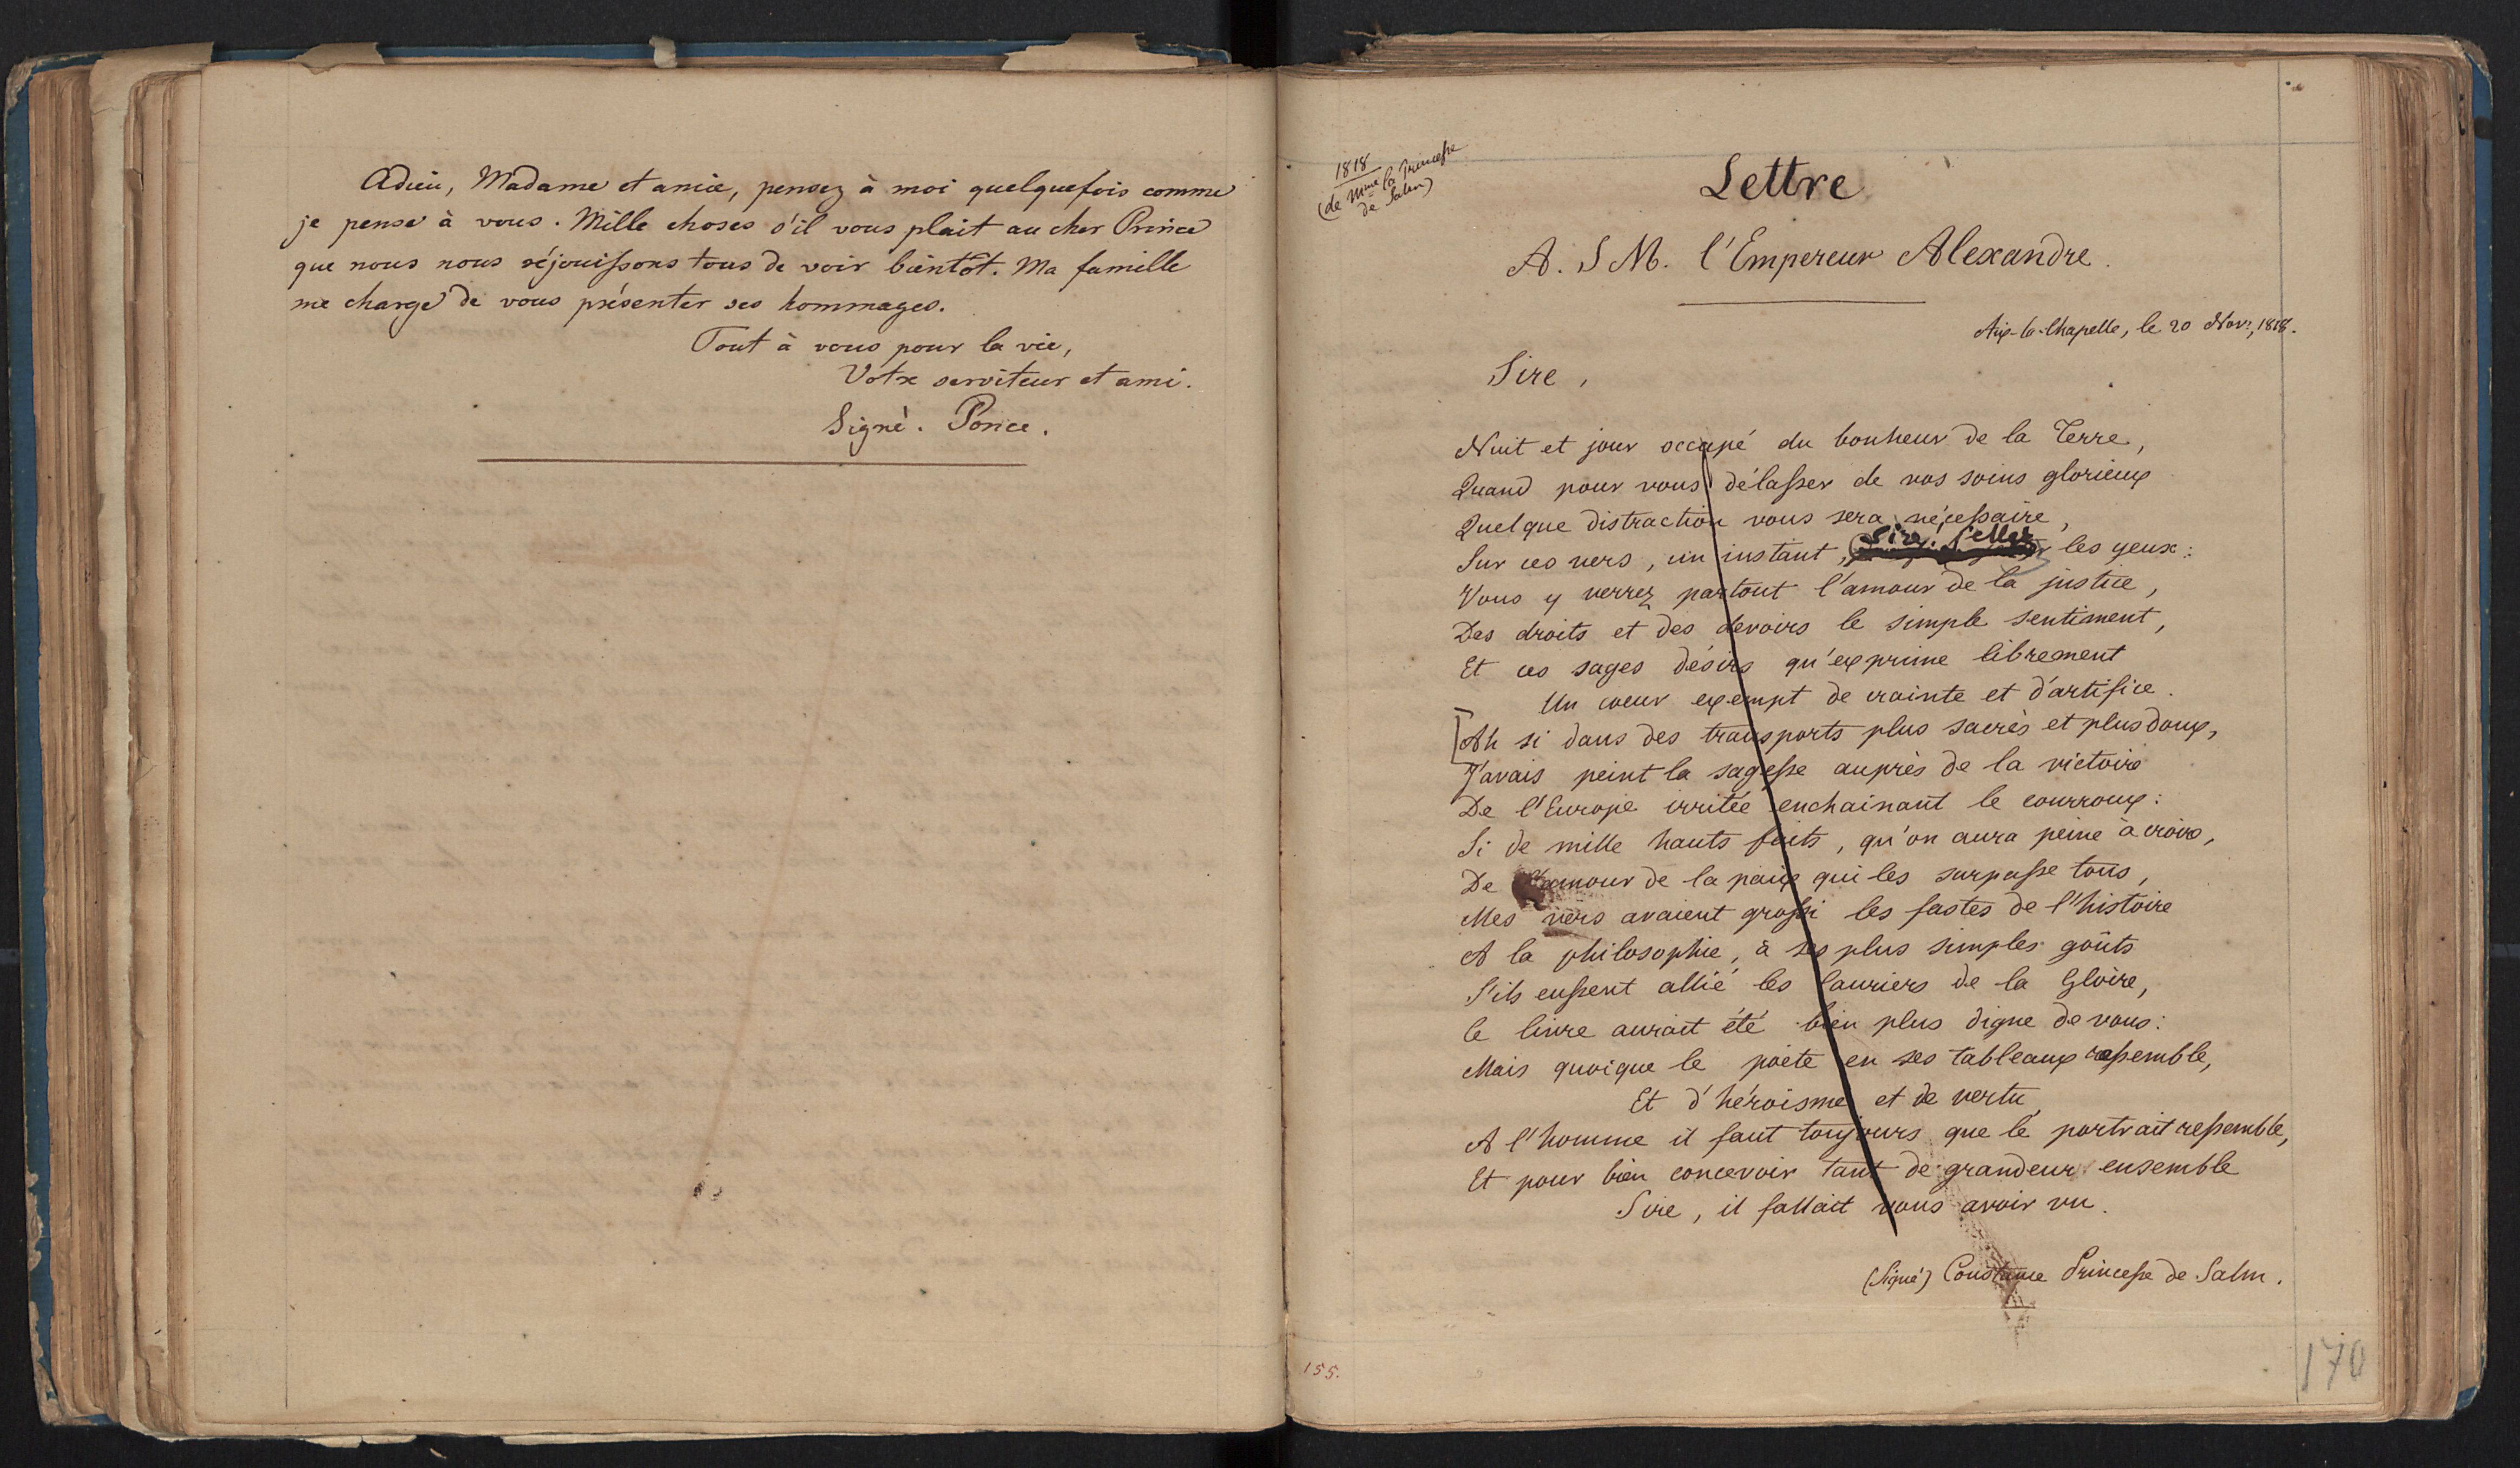 Adieu, Madame et amie, pensez à moi quelquefois comme
je pense à vous. Mille choses s'il vous plait au cher Prince
que nous nous réjouissons tous de voir bientôt. Ma famille
me charge de vous présenter ses hommages.
Tout à vous pour la vie,
Votre serviteur et ami.
Signé. Ponce.
1818
(de Mme la Princesse
de Salm)
Lettre
A. S M. l'Empereur Alexandre.
Aix-la-Chapelle, le 20 Nov., 1818.
Sire,
Nuit et jour occupé du bonheur de la Terre,
Quand pour vous délasser de vos soins glorieux
Quelque distraction vous sera nécessaire,
Sur ces vers, un instant, Sire, les yeux:
Vous y verrez partout l'amour de la justice,
Des droits et des devoirs le simple sentiment,
Et ces sages désirs qu'exprime librement
Un coeur exempt de crainte et d'artifice.
Ah si dans des transports plus sacrés et plus doux,
J'avais peint la sagesse auprès de la victoire
De l'Europe irritée enchainant le courroux:
Si de mille hauts faits, qu'on aura peine à croire,
De l'amour de la paix qui les surpasse tous,
Mes vers avaient grossi les fastes de l'histoire
A la philosophie, à ses plus simples goûts
S'ils eussent allié les lauriers de la Gloire,
le livre aurait été bien plus digne de vous:
Mais quoique le poète en ses tableaux rassemble,
Et d'héroisme et de vertu,
A l'homme il faut toujours que le portrait ressemble,
Et pour bien concevoir tant de grandeur ensemble
Sire, il fallait vous avoir vu.
(Signé) Constance Princesse de Salm.
155.
170